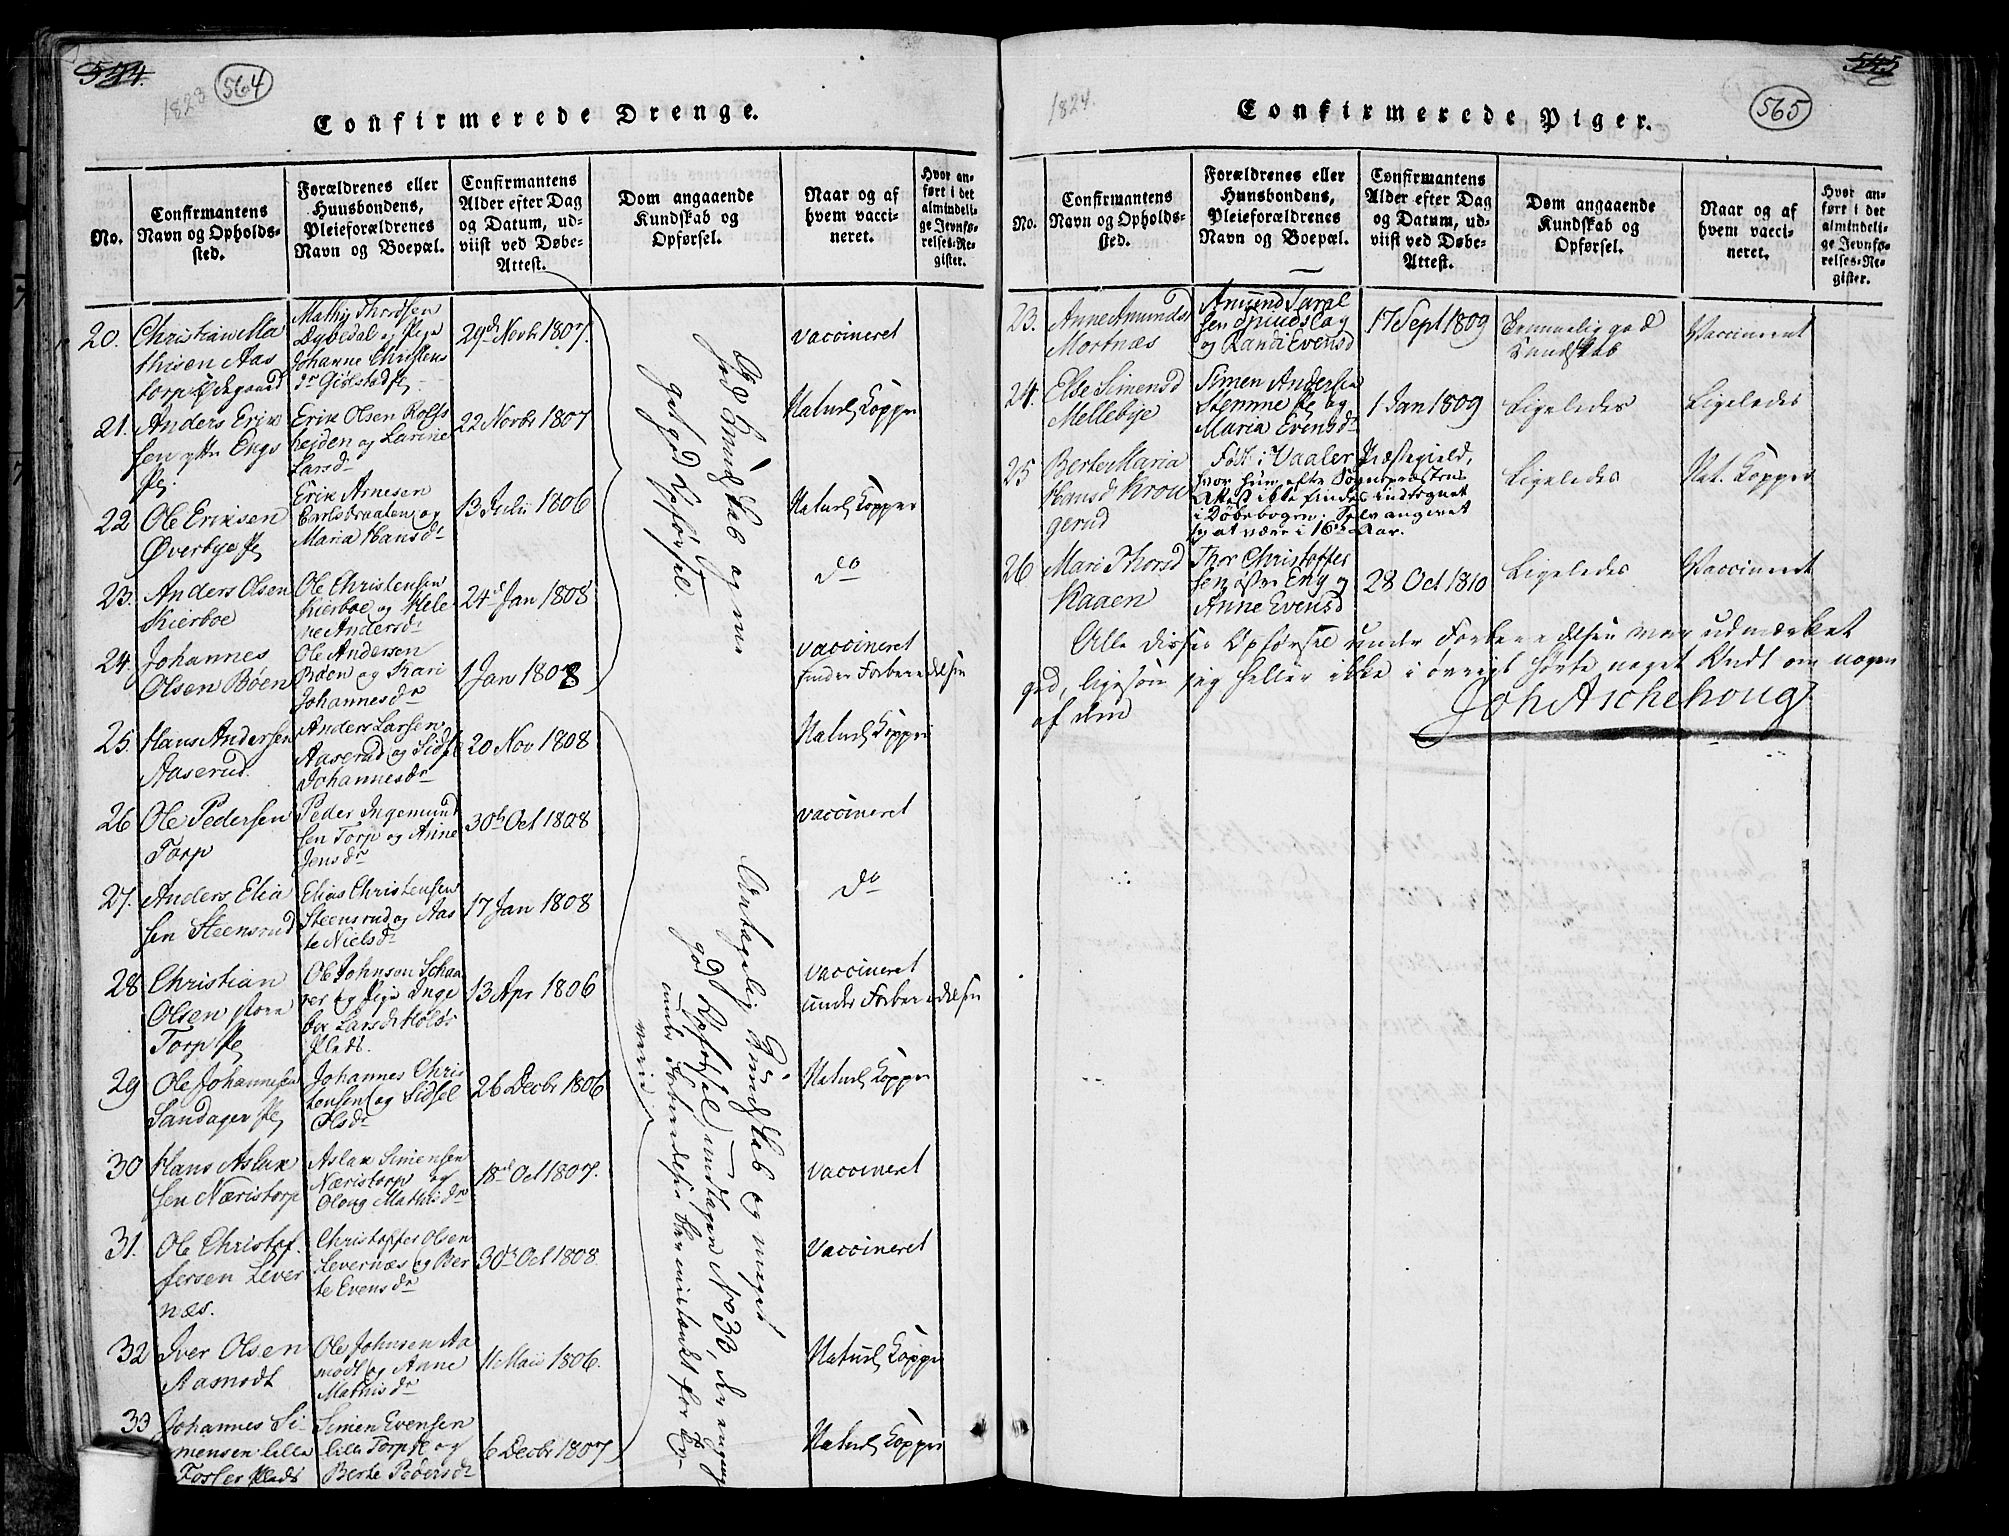 544.
1823
564
Confirmerede Drenge.
No.
Confirmantens
Navn og Opholds-
sted.
Forældrenes eller
Huusbondens,
Pleieforældrenes
Navn og Boepæl.
Confirmantens
Alder efter Dag
og Datum, ud-
viist ved Døbe-
Attest.
Dom angaaende
Kundskab og
Opførsel.
Naar og af
hvem vacci-
neret.
Hvor an-
ført i det
almindeli-
ge Jevnfø-
relses-Re-
gister.
20.
Christian Ma
thisen Aas
torp Ødegaard
Mathis Thordsen
Dybedal og Pige
Johanne Christens
dr Gislstad
29de Novbr 1807.
vaccineret
21.
Anders Erik
sen ytre Engs
Pl.
Erik Olsen Rolfs
heiden og Larine
Larsdr
22 Novbr 1807
Naturl Kopper
22
Ole Eriksen
Øverbye Pl
Erik Arnesen
Carlsbraaten og
Maria Hansdr
13 Julii 1806
Naturl Kopper
23.
Anders Olsen
Kierboe
Ole Christensen
Kierboe og Hele
ne Andersdr
24de Jan 1808
do
24.
Johannes
Olsen Bøen
Ole Andersen
Bøen og Kari
Johannesdr
1 Jan 1808
vaccineret
under Forberedelsen
God Kundskab og me
get god Opførsel.
25
Hans Andersen
Aaserud.
Anders Larsen
Aaserud og Sidse
Johannesdr
20 Nov 1808
Naturl Kopper
26
Ole Pedersen
Torp
Peder Ingemund
sen Torp og Anne
Jensdr
30te Oct 1808
vaccineret
27.
Anders Elia
sen Steensrud
Elias Christensen
Steensrud og Aas
te Nielsdr
17 Jan 1808
do
28
Christian
Olsen store
Torp Pl
Ole Johnsen Skaa
rer og Pige Inge
bor Larsdr Holts
Pladt.
13 Apr 1806
vaccineret
under Forberedelsen
29
Ole Johannesen
Sandager Pl
Johannes Chris
tensen og Sidsel
Olsdr
26 Decbr 1806
Naturl Kopper
30
Hans Aslak
sen Næristorp
Aslak Simensen
Næristorp og
Oloug Mathisdr
18de Oct 1807.
vaccineret
31.
Ole Christof
fersen Lever
næs.
Christoffer Olsen
Levernæs og Ber
te Evensdr
30te Oct 1808
vaccineret
32
Iver Olsen
Aamodt
Ole Johnsen Aa
modt og Anne
Mathisdr
11 Maii 1806.
Naturl Kopper
33
Johannes Si-
mensen lille
Fosser Plads
Simen Evensen
lille Torp Pl og
Berte Pedersdr
6 Decbr 1807
Naturl Kopper
Antagelig Kundskab og meget
god Opførsel, undtagen No 33, der engang
under Forberedelsen blev mistænkt for
545
1824.
565
Confirmerede Piger.
No.
Confirmantens
Navn og Opholds-
sted.
Forældrenes eller
Huusbondens,
Pleieforældrenes
Navn og Boepæl.
Confirmantens
Alder efter Dag
og Datum, ud-
viist ved Døbe-
Attest.
Dom angaaende
Kundskab og
Opførsel.
Naar og af
hvem vacci-
neret.
Hvor an-
ført i det
almindeli-
ge Jevnfø-
relses-Re-
gister.
23.
Anne Amundsd
Mortnæs
Amund Taral
sen Grindslag
og Randi Evensd
17 Sept 1809
Temmelig god
Kundskab
Vaccineret
24.
Else Simensd
Mellebye
Simen Andersen
Stemme Pl og
Maria Evensdr
1 Jan 1809
Ligeledes
Ligeledes
25
Berte Maria
Hansd Krou
gerud
Født i Vaaler Præstegield,
hvor hun efter Sognepræstens
Attest ikke findes indtegnet
i Døbebogen. Selv angivet
sig at være i 16de Aar.
Ligeledes
Nat. Kopper
26
Mari Thorsd
Kaaen
Thor Christoffer
sen østre Eng og
Anne Evensd
28 Oct 1810
Ligeledes
Vaccineret
Alle disses Opførsel under Forberedelsen var udmærket
god, ligesom jeg heller ikke i øvrigt hørte noget Ondt om nogen
af dem
Joh Aschehoug